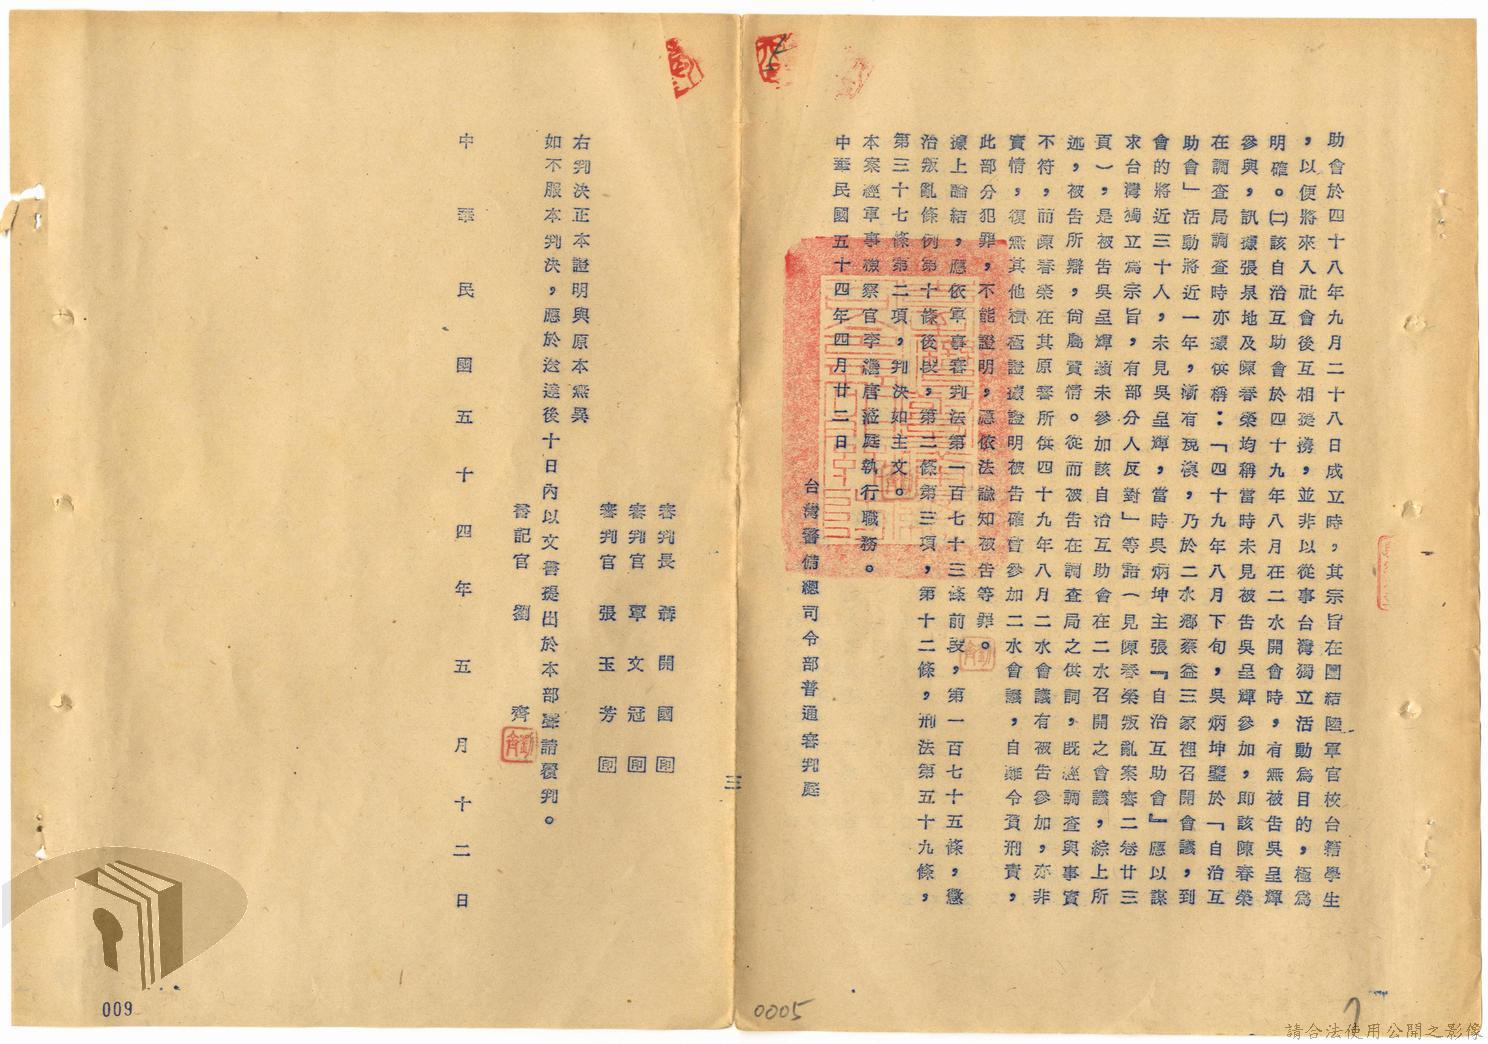 助會於四十八年九月二十八日成立時，其宗旨在團結陸軍官校台籍學生
，以便將來入社會後互相提攜，並非以從事台灣獨立活動為目的，極為
明確。㈡該自治互助會於四十九年八月在二水開會時，有無被告吳呈輝
參與，訊據張泉地及陳春榮均稱當時未見被告吳呈輝參加，即該陳春榮
在調查局調查時亦據供稱：「四十九年八月下旬，吳炳坤鑒於「自治互
助會」活動將近一年，漸有規模，乃於二水鄉蔡益三家裡召開會議，到
會的將近三十人，未見吳呈輝，當時吳炳坤主張『自治互助會』應以謀
求台灣獨立為宗旨，有部分人反對」等語（見陳春榮叛亂案審二卷廿三
頁），是被告吳呈輝未參加該自治互助會在二水召開之會議，綜上所
述，被告所辯，尚屬實情。從而被告在調查局之供詞，既經調查與事實
不符，而陳春榮在其原審所供四十九年八月二水會議有被告參加，亦非
實情，復無其他積極證據證明被告確曾參加二水會議，自難令負刑責，
此部分犯罪，不能證明，應依法諭知被告等罪。
據上論結，應依軍事審判法第一百七十三條前段，第一百七十五條，懲
治叛亂條例第十條後段，第二條第三項，第十二條，刑法第五十九條，
第三十七條第二項，判決如主文。
本案經軍事檢察官李鴻唐蒞庭執行職務。
中華民國五十四年四月廿二日
台灣警備總司令部普通審判庭
三
審判長　開國印
審判官　覃文冠印
審判官　張玉芳印
右判決正本證明與原本無異
如不服本判決，應於送達後十日內以文書提出於本部聲請覆判。
書記官　劉齊
中華民國五十四年五月十二日
009
0005
請合法使用公開之影像